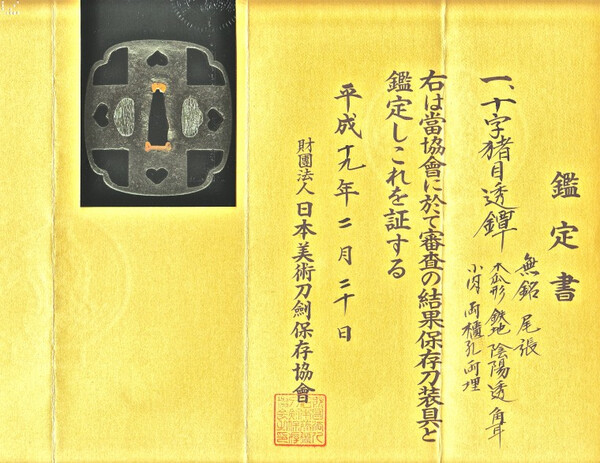 鑑定書
一、十字猪目透鐔
無銘 尾張
木瓜形 鉄地 陰陽透 角耳
小肉 両櫃孔 両埋
右は當協會に於て審査の結果保存刀装具と
鑑定しこれを証する
平成十九年二月二十日
財團法人 日本美術刀劍保存協會